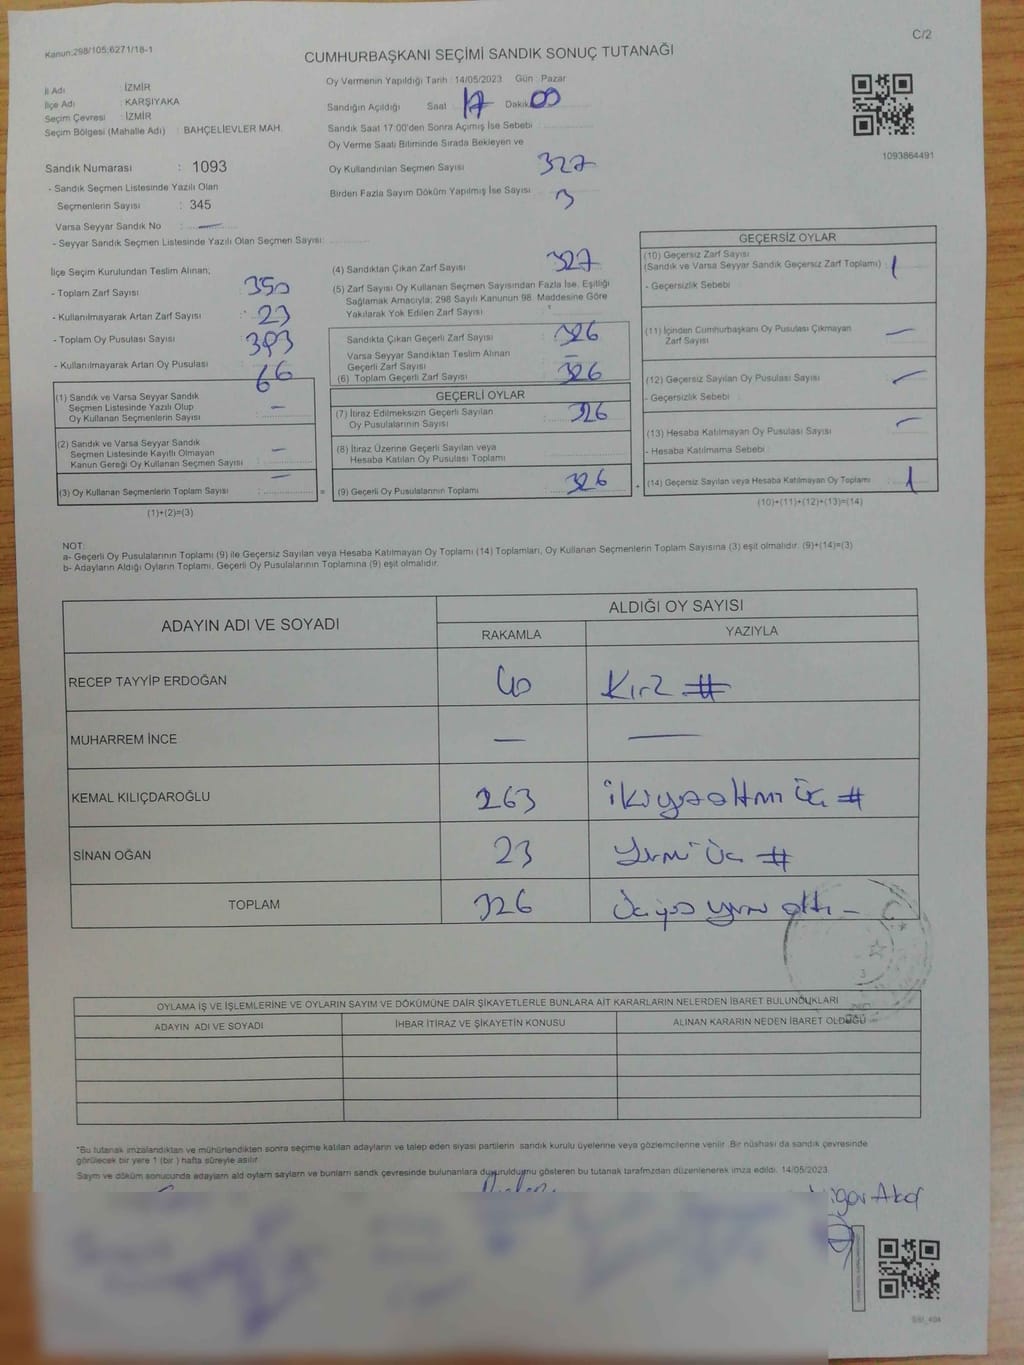 Kanun:298/105;6271/18-1
C/2
CUMHURBAŞKANI SEÇİMİ SANDIK SONUÇ TUTANAĞI
İl Adı : İZMİR
İlçe Adı : KARŞIYAKA
Seçim Çevresi : İZMİR
Seçim Bölgesi (Mahalle Adı) : BAHÇELİEVLER MAH.
Oy Vermenin Yapıldığı Tarih : 14/05/2023 Gün : Pazar
Sandığın Açıldığı Saat 17 Dakika 00
Sandık Saat 17:00'den Sonra Açımış İse Sebebi :
Oy Verme Saati Bitiminde Sırada Bekleyen ve
Oy Kullandırılan Seçmen Sayısı : 327
Birden Fazla Sayım Döküm Yapılmış İse Sayısı 3
1093864491
Sandık Numarası : 1093
- Sandık Seçmen Listesinde Yazılı Olan
Seçmenlerin Sayısı : 345
Varsa Seyyar Sandık No : —
- Seyyar Sandık Seçmen Listesinde Yazılı Olan Seçmen Sayısı:
İlçe Seçim Kurulundan Teslim Alınan;
- Toplam Zarf Sayısı : 350
- Kullanılmayarak Artan Zarf Sayısı : 23
- Toplam Oy Pusulası Sayısı : 393
- Kullanılmayarak Artan Oy Pusulası : 66
(1) Sandık ve Varsa Seyyar Sandık
Seçmen Listesinde Yazılı Olup
Oy Kullanan Seçmenlerin Sayısı : —
(2) Sandık ve Varsa Seyyar Sandık
Seçmen Listesinde Kayıtlı Olmayan
Kanun Gereği Oy Kullanan Seçmen Sayısı : —
(3) Oy Kullanan Seçmenlerin Toplam Sayısı : — =
(1)+(2)=(3)
(4) Sandıktan Çıkan Zarf Sayısı : 327
(5) Zarf Sayısı Oy Kullanan Seçmen Sayısından Fazla İse, Eşitliği
Sağlamak Amacıyla; 298 Sayılı Kanunun 98. Maddesine Göre
Yakılarak Yok Edilen Zarf Sayısı :
Sandıkta Çıkan Geçerli Zarf Sayısı : 326
Varsa Seyyar Sandıktan Teslim Alınan
Geçerli Zarf Sayısı : —
(6) Toplam Geçerli Zarf Sayısı : 326
GEÇERLİ OYLAR
(7) İtiraz Edilmeksizin Geçerli Sayılan
Oy Pusulalarının Sayısı : 326
(8) İtiraz Üzerine Geçerli Sayılan veya
Hesaba Katılan Oy Pusulası Toplamı :
(9) Geçerli Oy Pusulalarının Toplamı : 326 +
GEÇERSİZ OYLAR
(10) Geçersiz Zarf Sayısı
(Sandık ve Varsa Seyyar Sandık Geçersiz Zarf Toplamı) : 1
- Geçersizlik Sebebi :
(11) İçinden Cumhurbaşkanı Oy Pusulası Çıkmayan
Zarf Sayısı : —
(12) Geçersiz Sayılan Oy Pusulası Sayısı : —
- Geçersizlik Sebebi :
(13) Hesaba Katılmayan Oy Pusulası Sayısı : —
- Hesaba Katılmama Sebebi :
(14) Geçersiz Sayılan veya Hesaba Katılmayan Oy Toplamı : 1
(10)+(11)+(12)+(13)=(14)
NOT:
a- Geçerli Oy Pusulalarının Toplamı (9) ile Geçersiz Sayılan veya Hesaba Katılmayan Oy Toplamı (14) Toplamları, Oy Kullanan Seçmenlerin Toplam Sayısına (3) eşit olmalıdır. (9)+(14)=(3)
b- Adayların Aldığı Oyların Toplamı, Geçerli Oy Pusulalarının Toplamına (9) eşit olmalıdır.
ADAYIN ADI VE SOYADI ALDIĞI OY SAYISI
RAKAMLA YAZIYLA
RECEP TAYYİP ERDOĞAN 40 Kırk #
MUHARREM İNCE — —
KEMAL KILIÇDAROĞLU 263 ikiyüzaltmış üç #
SİNAN OĞAN 23 Yirmi üç #
TOPLAM 326 Üçyüz yirmi altı -
OYLAMA İŞ VE İŞLEMLERİNE VE OYLARIN SAYIM VE DÖKÜMÜNE DAİR ŞİKAYETLERLE BUNLARA AİT KARARLARIN NELERDEN İBARET BULUNDUKLARI
ADAYIN ADI VE SOYADI İHBAR İTİRAZ VE ŞİKAYETİN KONUSU ALINAN KARARIN NEDEN İBARET OLDUĞU
*Bu tutanak imzalandıktan ve mühürlendikten sonra seçime katılan adayların ve talep eden siyasi partilerin sandık kurulu üyelerine veya gözlemcilerine verilir. Bir nüshası da sandık çevresinde
görülecek bir yere 1 (bir ) hafta süreyle asılır.
Sayım ve döküm sonucunda adayların ald oyların sayların ve bunların sandk çevresinde bulunanlara duyurulduğnu gösteren bu tutanak tarafmzdan düzenlenerek imza edildi. 14/05/2023